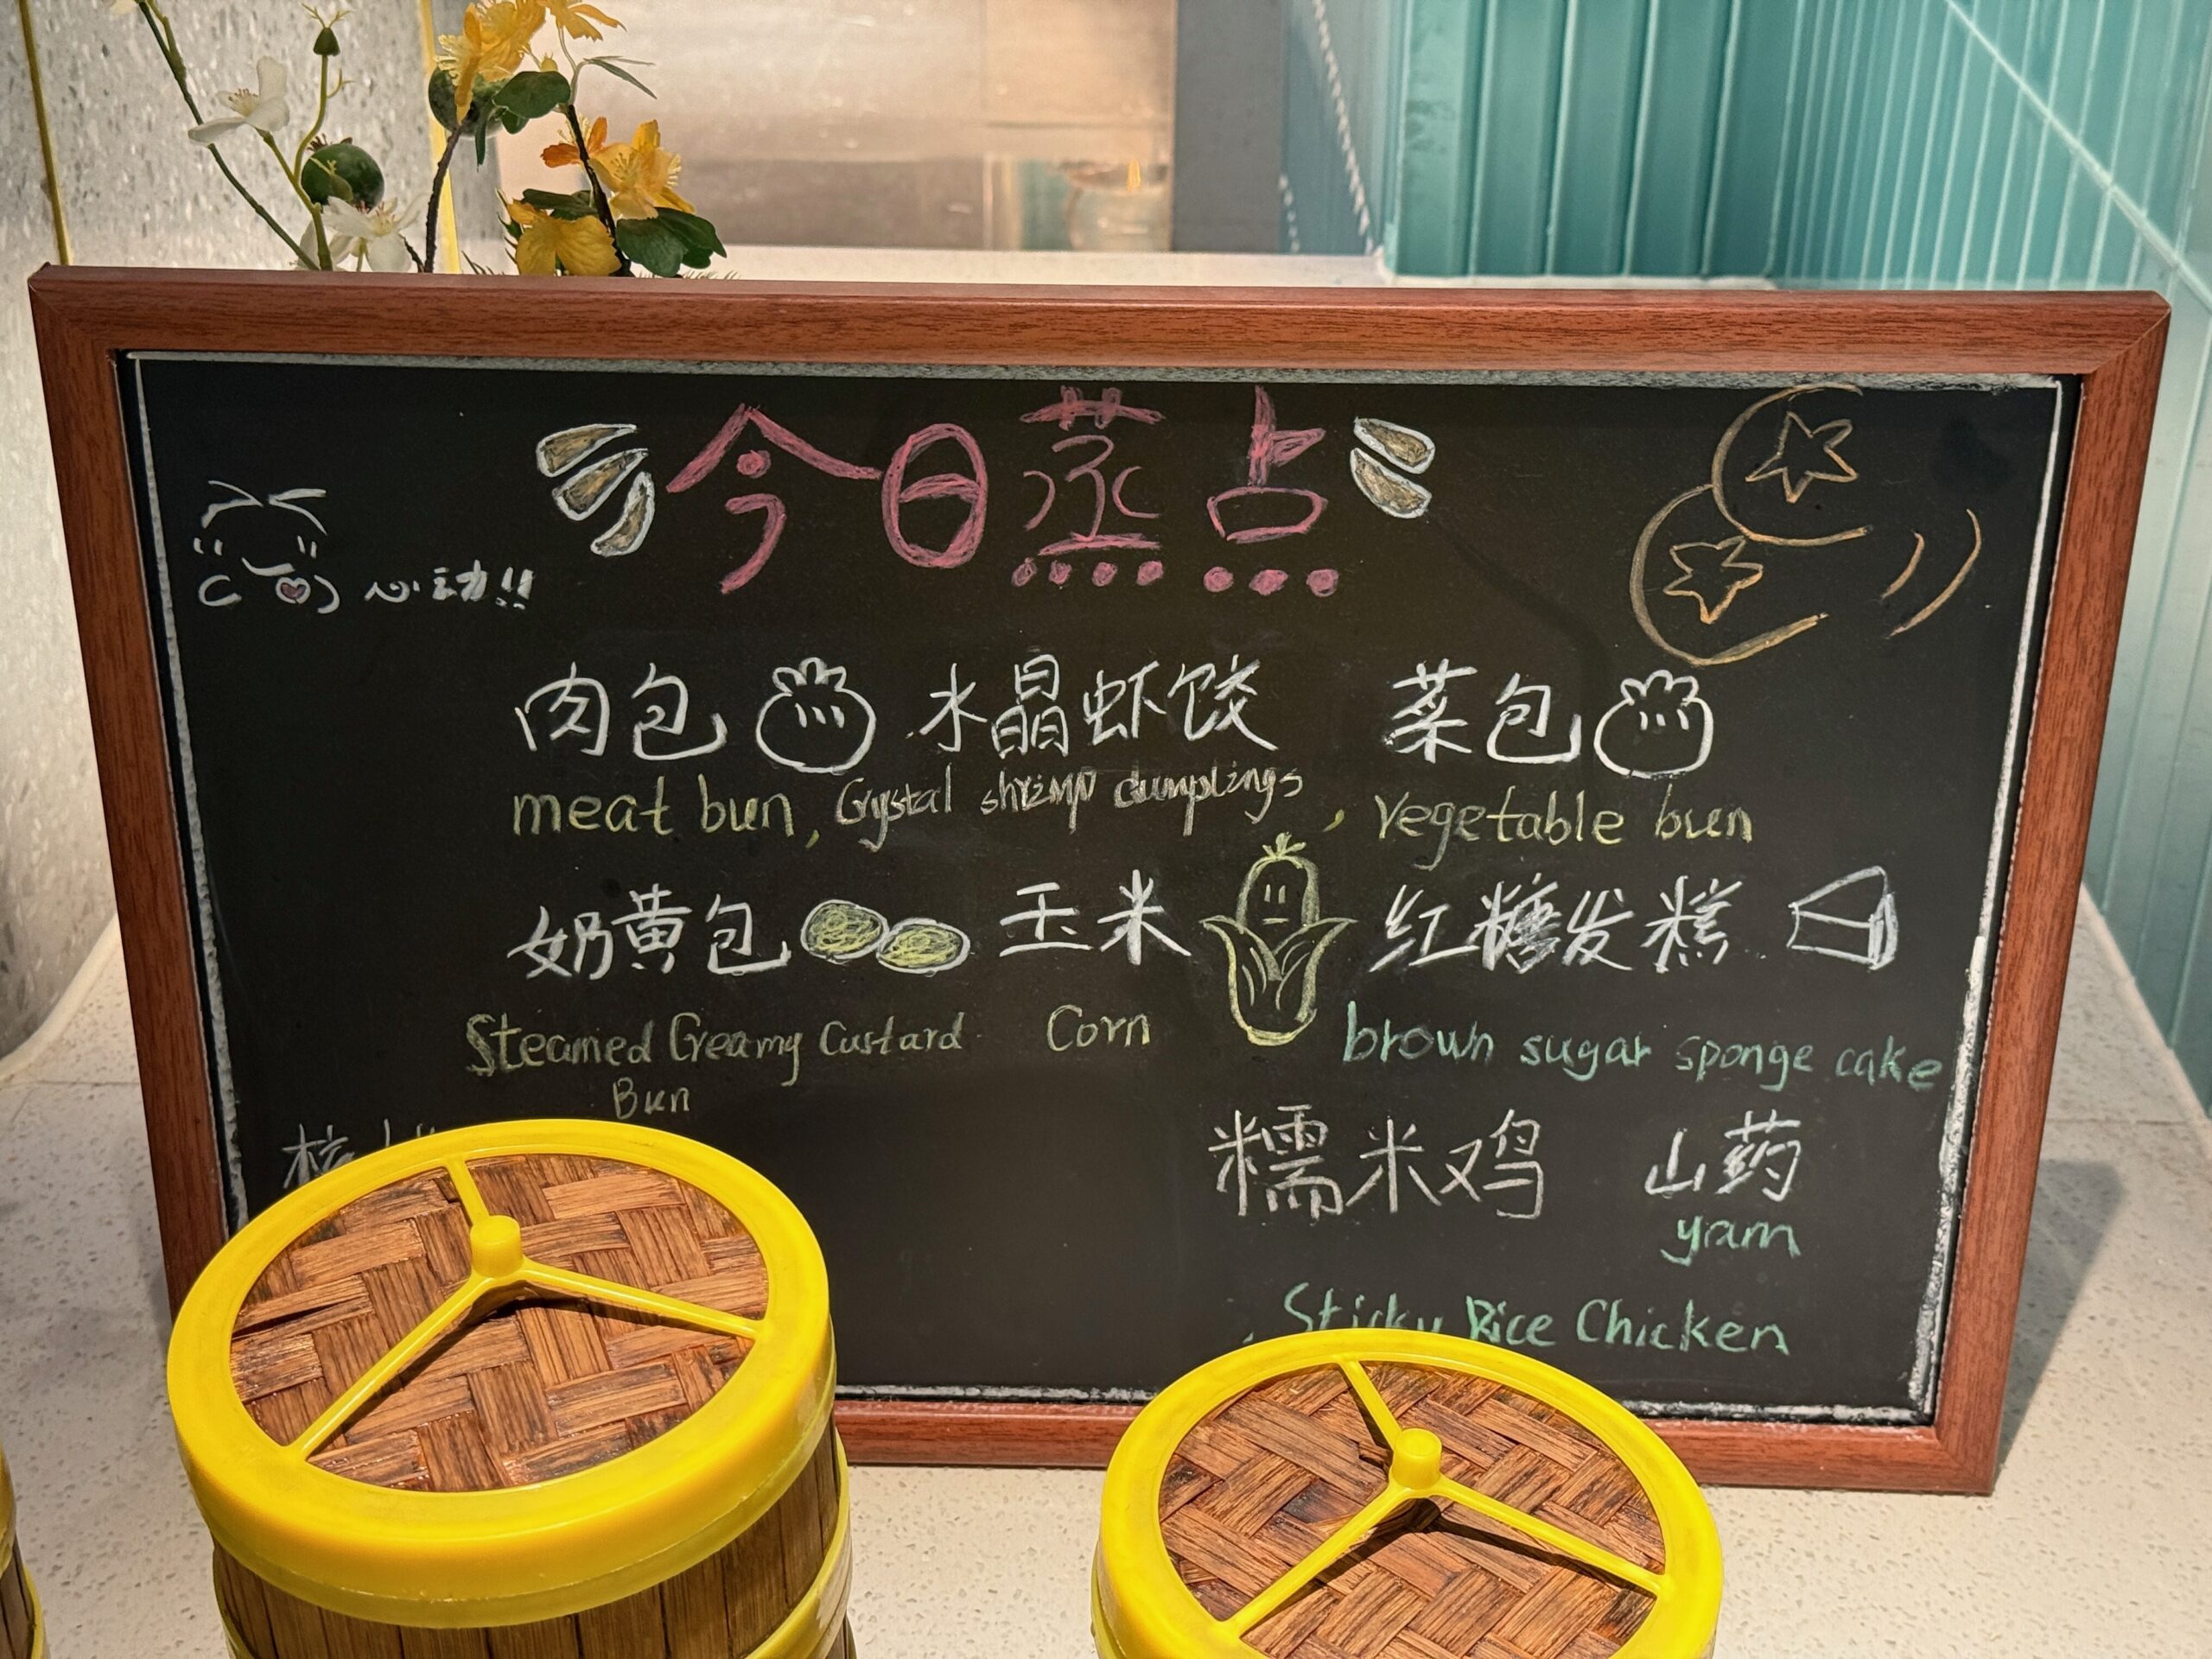 今日蒸点
心动!!
肉包 水晶虾饺 菜包
meat bun, Crystal shrimp dumplings, vegetable bun
奶黄包 玉米 红糖发糕
Steamed Creamy Custard Corn brown sugar sponge cake
Bun
糯米鸡 山药
yam
Sticky Rice Chicken